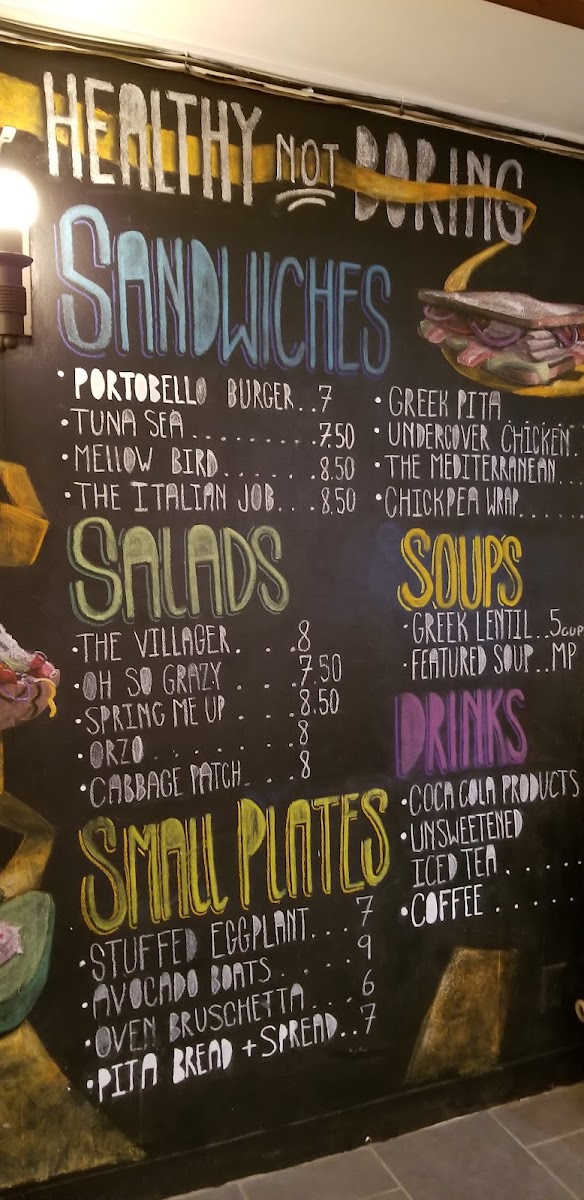 HEALTHY NOT BORING
SANDWICHES
• PORTOBELLO BURGER..7
• TUNA SEA.........7.50
• MELLOW BIRD......8.50
• THE ITALIAN JOB...8.50
• GREEK PITA
• UNDERCOVER CHICKEN.
• THE MEDITERRANEAN...
• CHICKPEA WRAP......
SALADS
• THE VILLAGER....8
• OH SO GRAZY....7.50
• SPRING ME UP....8.50
• ORZO........8
• CABBAGE PATCH....8
SOUPS
• GREEK LENTIL..5CUP
• FEATURED SOUP..MP
DRINKS
• COCA COLA PRODUCTS
• UNSWEETENED
ICED TEA......
• COFFEE......
SMALL PLATES
• STUFFED EGGPLANT...7
• AVOCADO BOATS.....9
• OVEN BRUSCHETTA...6
• PITA BREAD + SPREAD..7